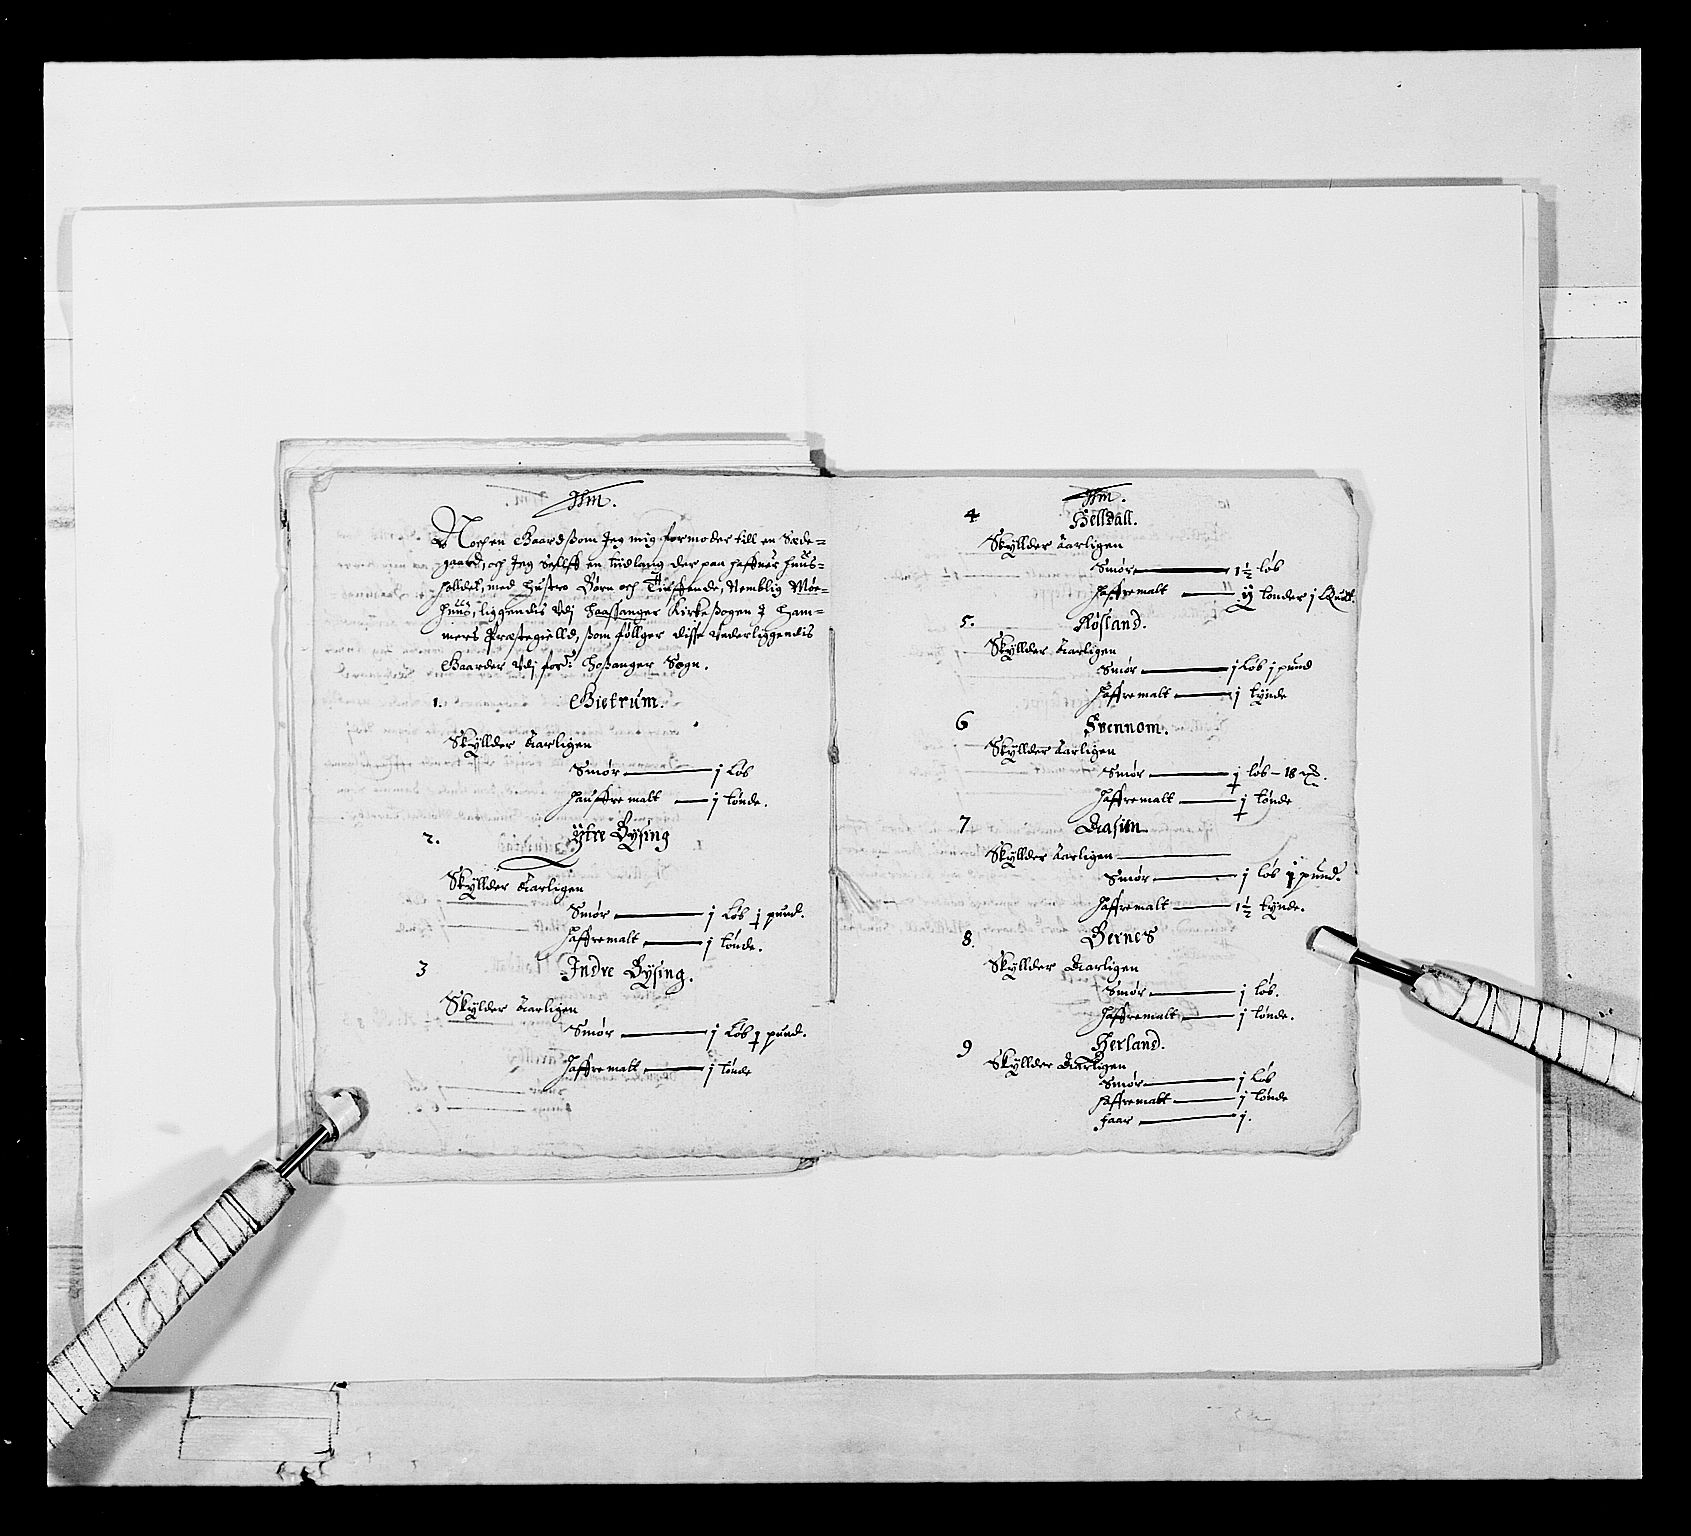 Jtm.
Noch en Gaard ßom Jeg mig formoder till en Sæde=
gaard, och Jeg Sellff en tiidlang der paa haffuer huus=
holldet, med hustro Børn och Tiufftende, Nemblig Møe=
huus, liggendis Vdj Haassanger Kirkeßogen J Ham=
mers Præstegielld, ßom föllger disse Vnderliggendis
Gaarder Vdj for: Hoßanger Sogn.
1. Gietrum.
Skyllder Aarligen
Smør — j Löb
Hauffre malt — j tönde.
2. Ytre Bysing
Skyllder Aarligen
Smør — j Löb j pund.
Haffremalt — j tönde.
3 Jndre Bysing.
Skylder Aarligen
Smør — j Löb j pund.
Haffremalt — j tönde
Jtm.
4 Helldall.
Skyllder Aarligen
Smør — 1½ löb
Haffremalt — ij tönder j Qutt.
5. Rösland.
Skyllder Aarligen
Smør — j Löb j pund
Haffremalt — j tynde
6 Svennom.
Skyllder Aarligen
Smør — j löb – 18 m.
Haffremalt — j tönde
7
Skyllder Aarligen
Smør — j löb j pund.
Haffremalt — 1½ tynde.
8. Bernes
Skyllder Aarligen
Smør — j löb.
Haffremalt — j tönde.
9 Herland.
Skyllder Aarligen
Smør — j Löb
Haffremalt — j tönde
Faar — j.